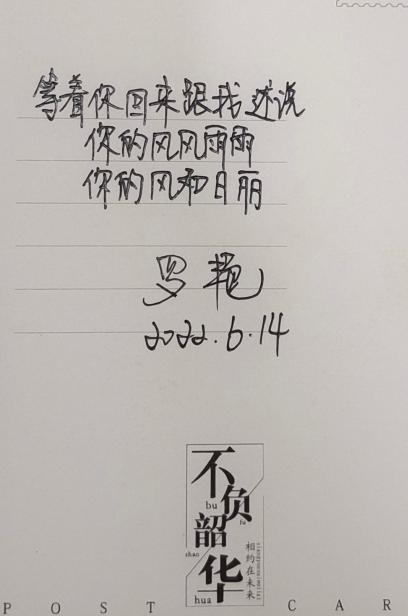 等着你回来跟我述说
你的风风雨雨
你的风和日丽
罗艳
2022.6.14
不负韶华
bu fu shao hua
相约在未来
POST CAR